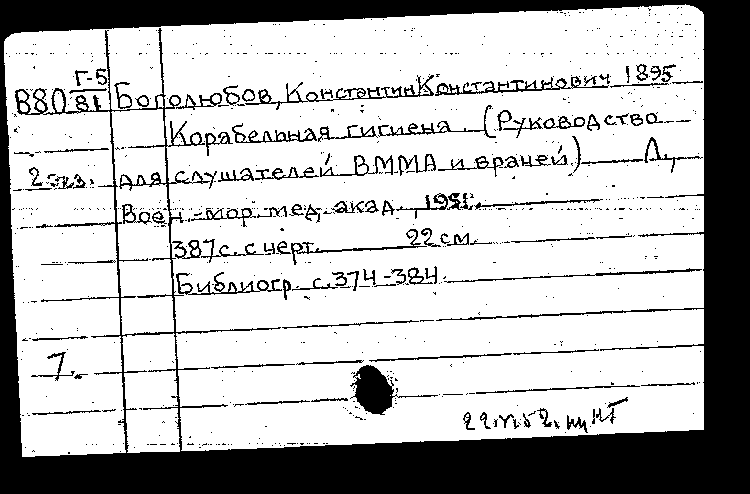 В80 Г-5/81 Боголюбов, Константин Константинович 1895
Корабельная гигиена. (Руководство
2 экз. для слушателей ВММА и врачей) Л.,
Воен.-мор. мед. акад., 1951.
387 с. с черт. 22 см.
Библиогр. с. 374-384.
1.